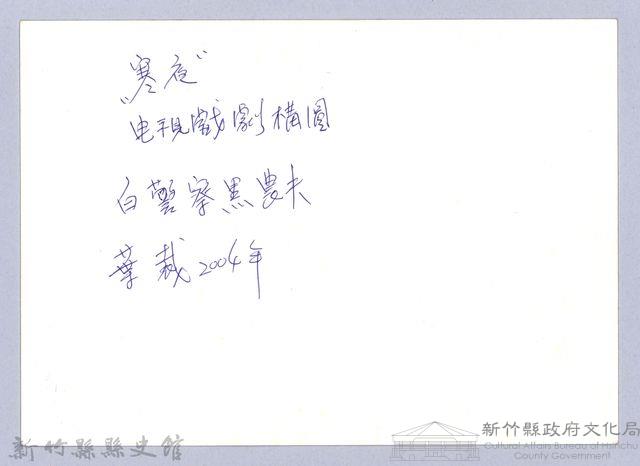 "寒夜"
电視戲劇構圖
白警察黑農夫
葉裁2004年
新竹縣縣史館
新竹縣政府文化局
Cultural Affairs Bureau of Hsinchu
County Government